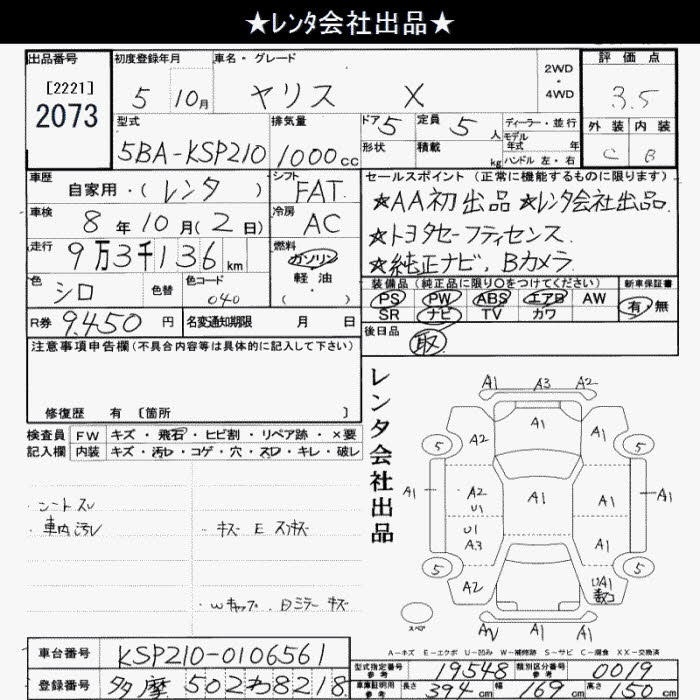 ★レンタ会社出品★
出品番号
[2221]
2073
初度登録年月
5 10月
車名・グレード
ヤリス X
2WD
・
4WD
評価点
3.5
外装 内装
C B
型式
5BA-KSP210
排気量
1000cc
ドア 5
形状
定員 5人
積載 kg
ディーラー・並行
モデル年式 年
ハンドル 左・右
車歴
自家用・(レンタ)
シフト
FAT
車検
8年10月(2日)
冷房
AC
走行
9万3千136km
燃料
ガソリン
軽油
・
( )
色
シロ
色替
色コード
040
R券 9,450円
名変通知期限 月 日
セールスポイント (正常に機能するものに限ります)
★AA初出品 ★レンタ会社出品
★トヨタセーフティセンス
★純正ナビ, Bカメラ
装備品(純正品に限り○をつけてください)
新車保証書
PS PW ABS エアB AW
SR ナビ TV カワ
有・無
後日品
取
注意事項申告欄(不具合内容等は具体的に記入して下さい)
修復歴 有 〔箇所 〕
検査員記入欄
FW キズ・飛石・ヒビ割・リペア跡・×要
内装 キズ・汚レ・コゲ・穴・スレ・キレ・破レ
・シートスレ
・車内汚レ
・キズ E スリキズ
・Wキャップ. Dミラー キズ
レンタ会社出品
A1 A3 A2
5 A2 A1 5
A1 A2 U1 A1 A1 A1
U1 A3 A1
5 A2 A1 5
スペア
AV A1 A1
A-キズ E-エクボ U-凹み W-補修跡 S-サビ C-腐食 XX-交換済
車台番号 KSP210-0106561
登録番号 多摩 502わ8218
型式指定番号 参考 19548
類別区分番号 参考 0019
車庫証明用 参考 長さ 394cm 幅 169cm 高さ 150cm